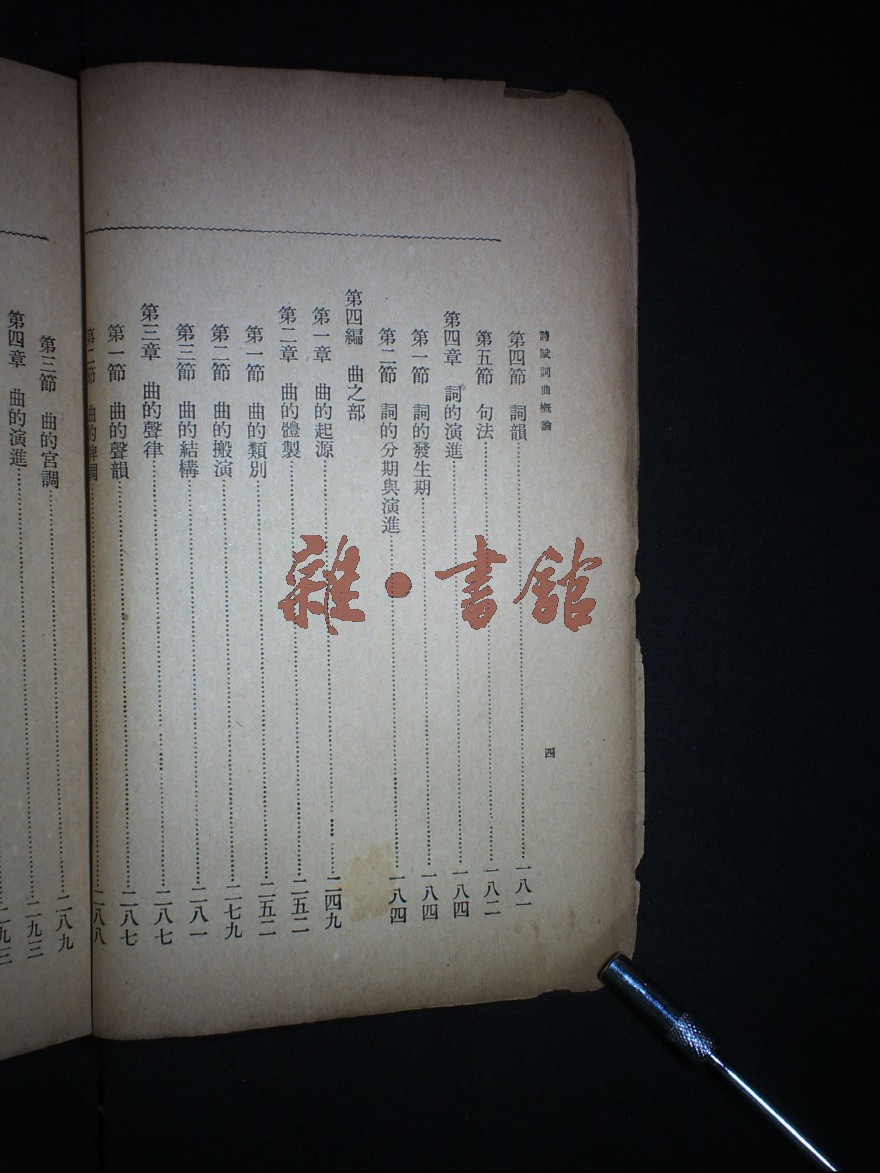 詩賦詞曲概論
四
第四節　詞韻……一八一
第五節　句法……一八二
第四章　詞的演進……一八四
第一節　詞的發生期……一八四
第二節　詞的分期與演進……一八四
第四編　曲之部
第一章　曲的起源……二四九
第二章　曲的體製……二五二
第一節　曲的類別……二五二
第二節　曲的搬演……二七九
第三節　曲的結構……二八一
第三章　曲的聲律……二八七
第一節　曲的聲韻……二八七
第二節　曲的牌調……二八八
第三節　曲的宮調……二八九
第四章　曲的演進……二九三
雜·書館